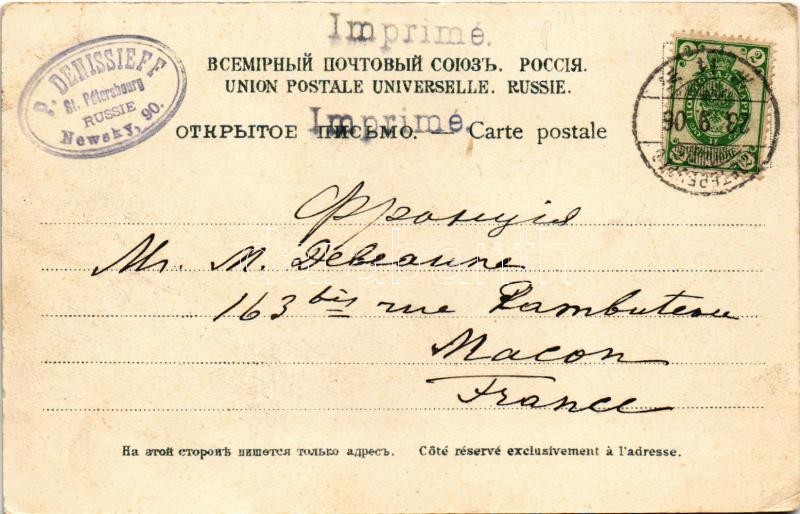 Imprimé.
P. DENISSIEFF
St. Pétersbourg
RUSSIE
Newsky, 90.
ВСЕМІРНЫЙ ПОЧТОВЫЙ СОЮЗЪ. РОССІЯ.
UNION POSTALE UNIVERSELLE. RUSSIE.
Imprimé.
ОТКРЫТОЕ ПИСЬМО. — Carte postale
2 2
2 2
Франція
Mr. M. Debeaune
163 bis rue Rambuteau
Macon
France
На этой сторонѣ пишется только адресъ. Côté réservé exclusivement à l'adresse.